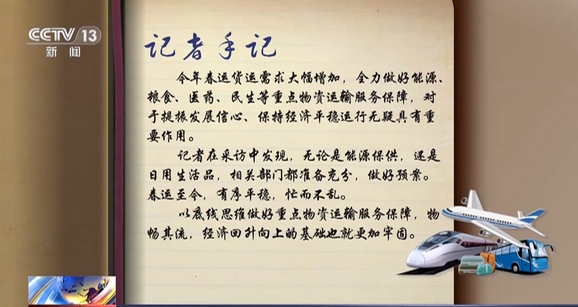 CCTV 13
新闻
记者手记
今年春运货运需求大幅增加，全力做好能源、
粮食、医药、民生等重点物资运输服务保障，对
于提振发展信心、保持经济平稳运行无疑具有重
要作用。
记者在采访中发现，无论是能源保供，还是
日用生活品，相关部门都准备充分，做好预案。
春运至今，有序平稳，忙而不乱。
以底线思维做好重点物资运输服务保障，物
畅其流，经济回升向上的基础也就更加牢固。